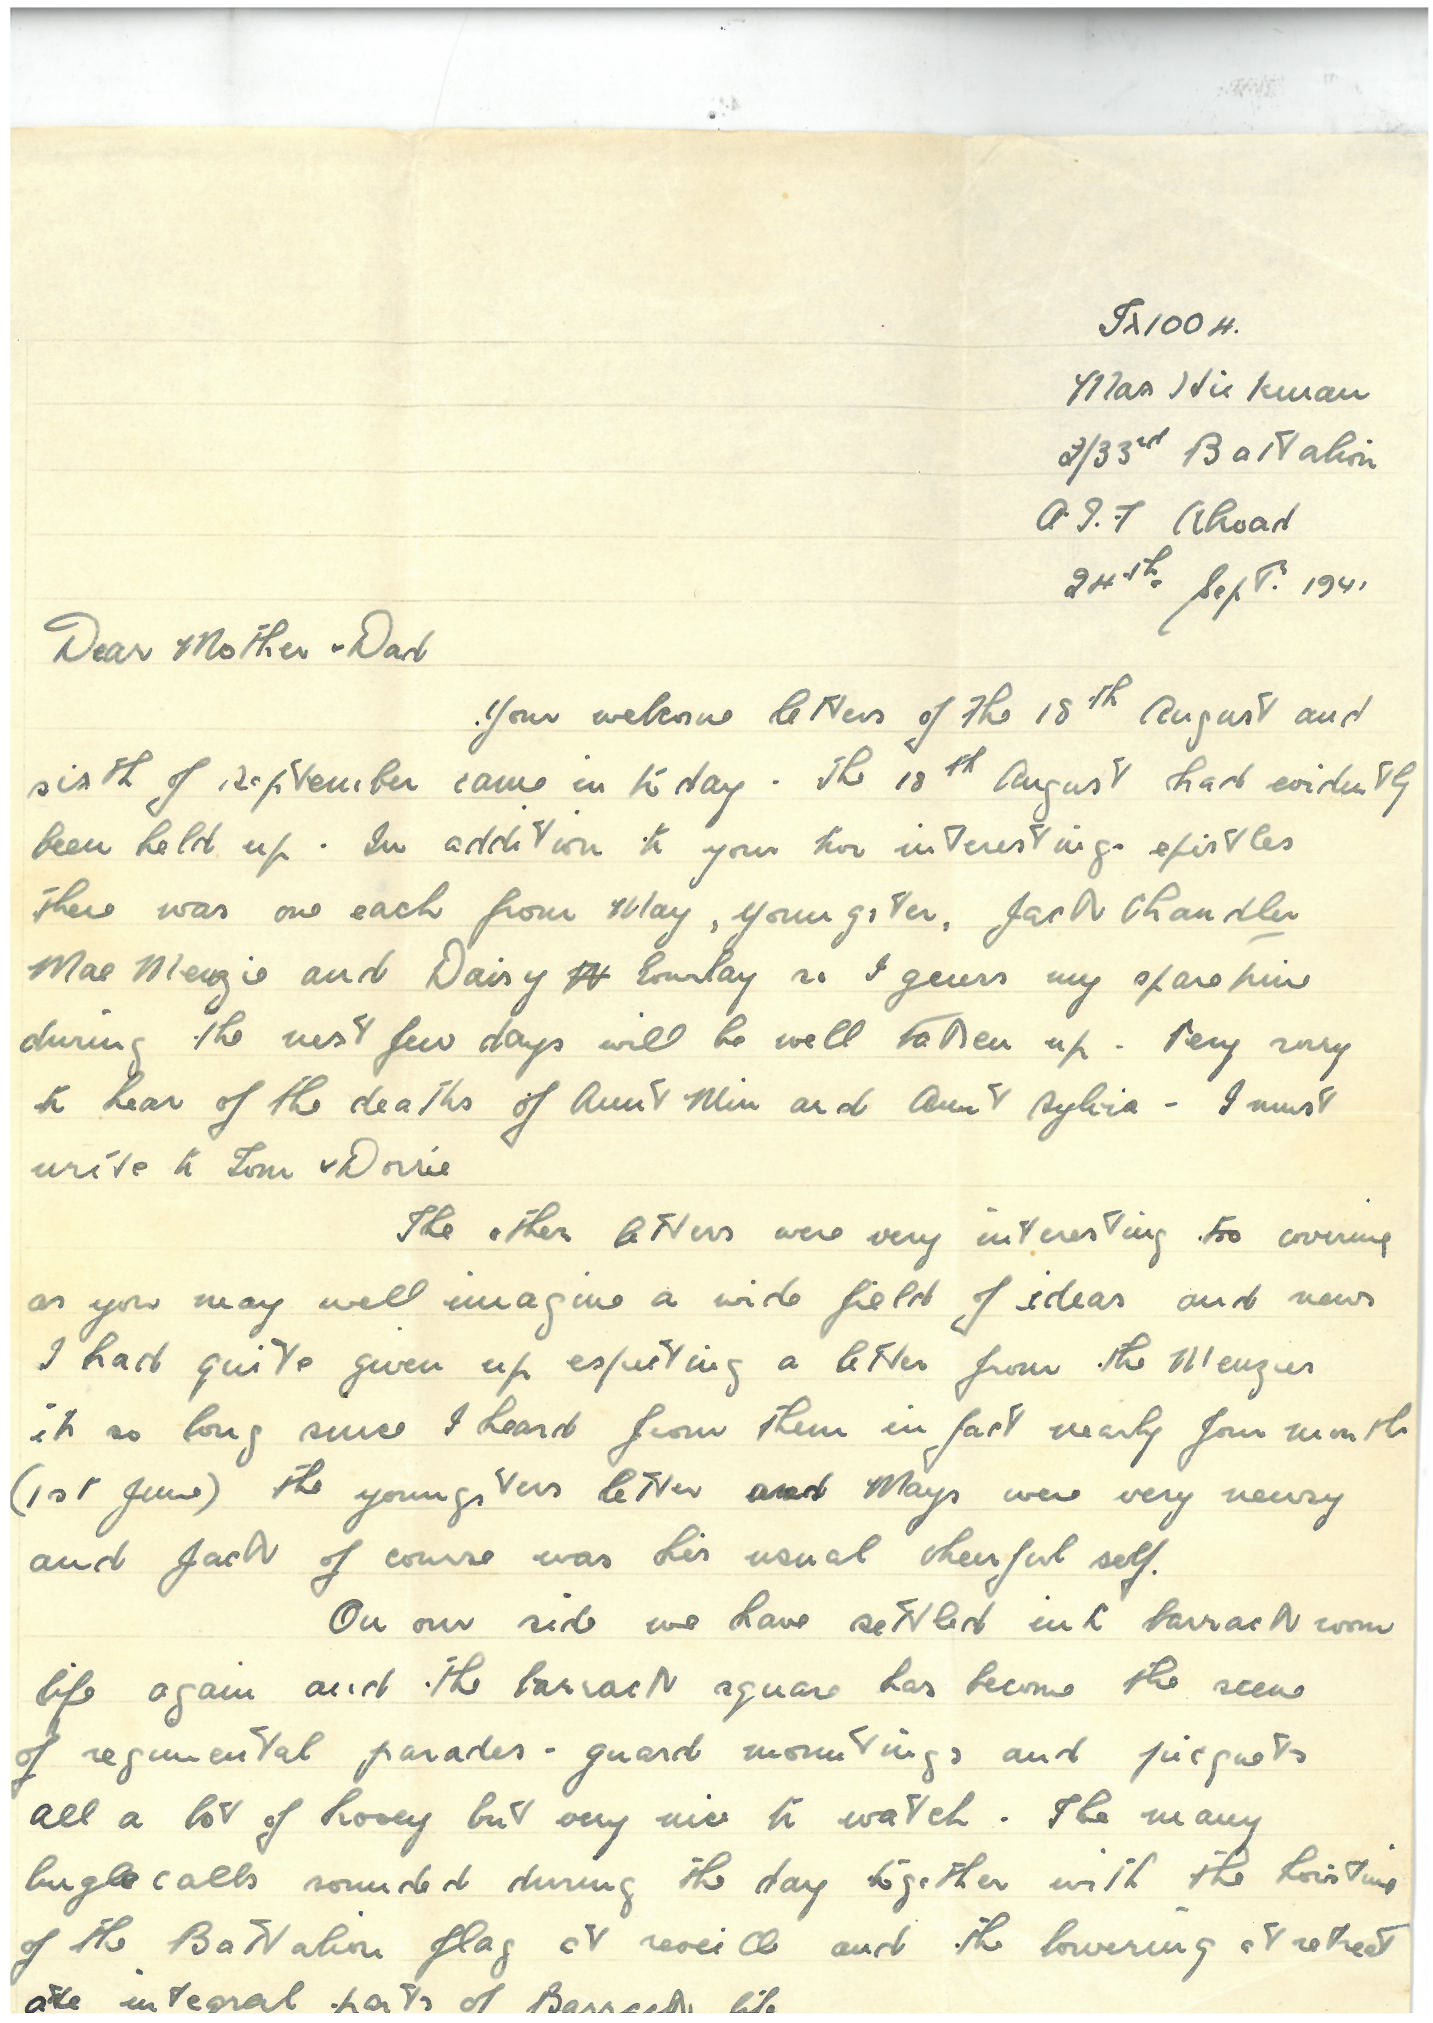 Tx1004.
Max Hickman
2/33rd Battalion
A.I.F Abroad
24th. Sept. 1941
Dear Mother & Dad
Your welcome letters of the 18th August and
sixth of September came in to day. The 18th August had evidently
been held up. In addition to your two interesting epistles
there was one each from May, Youngster, Jack Chandler
Mac Menzie and Daisy Gourlay so I guess my spare time
during the next few days will be well taken up. Very sorry
to hear of the deaths of Aunt Min and Aunt Sylvia - I must
write to Tom & Dorrie
The other letters were very interesting too covering
as you may well imagine a wide field of ideas and news
I had quite given up expecting a letter from the Menzies
its so long since I heard from them in fact nearly four months
(1st June) the youngsters letter and Mays were very newsy
and Jack of course was his usual cheerful self.
On our side we have settled into barrack room
life again and the barrack square has become the scene
of regimental parades - guard mountings and picquets
all a lot of hooey but very nice to watch. The many
bugle calls sounded during the day together with the hoisting
of the Battalion flag at reveille and the lowering at retreat
are integral parts of Barrack life